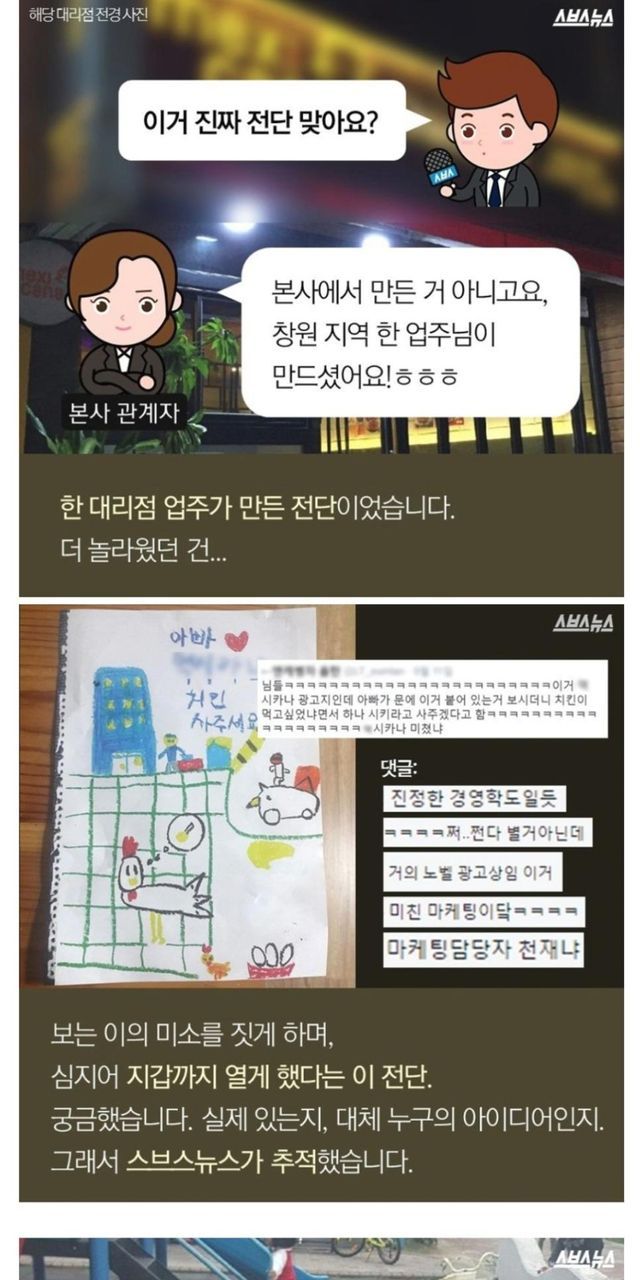 해당 대리점 전경 사진
스브스뉴스
이거 진짜 전단 맞아요?
스브스
본사에서 만든 거 아니고요,
창원 지역 한 업주님이
만드셨어요!ㅎㅎㅎ
본사 관계자
한 대리점 업주가 만든 전단이었습니다.
더 놀라웠던 건...
스브스뉴스
아빠
치킨
사주세요
님들ㅋㅋㅋㅋㅋㅋㅋㅋㅋㅋㅋㅋㅋㅋㅋㅋㅋㅋㅋㅋㅋㅋㅋㅋㅋㅋ이거
시카나 광고지인데 아빠가 문에 이거 붙어 있는거 보시더니 치킨이
먹고싶었냐면서 하나 시키라고 사주겠다고 함ㅋㅋㅋㅋㅋㅋㅋㅋㅋㅋ
ㅋㅋㅋㅋㅋㅋㅋㅋㅋ 시카나 미쳤냐
댓글:
진정한 경영학도일듯
ㅋㅋㅋㅋ쩌..쩐다 별거아닌데
거의 노벨 광고상임 이거
미친 마케팅이닼ㅋㅋㅋㅋ
마케팅담당자 천재냐
보는 이의 미소를 짓게 하며,
심지어 지갑까지 열게 했다는 이 전단.
궁금했습니다. 실제 있는지, 대체 누구의 아이디어인지.
그래서 스브스뉴스가 추적했습니다.
스브스뉴스